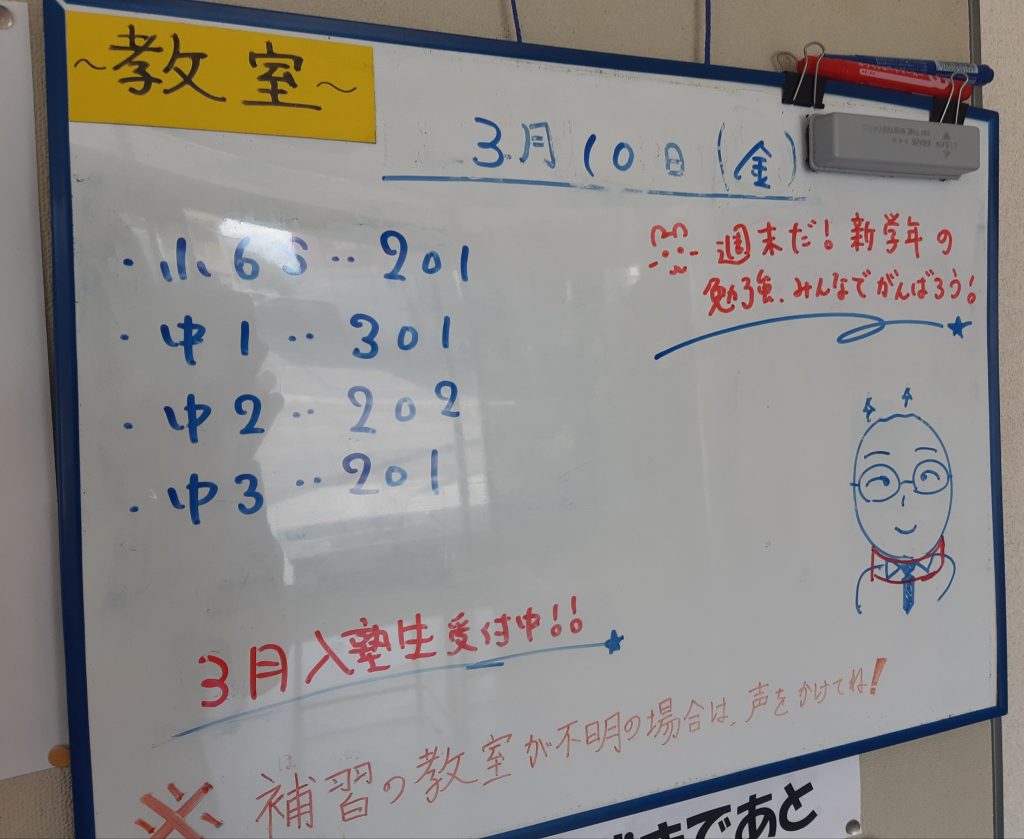 ～教室～
3月10日(金)
・小6S‥201
・中1‥301
・中2‥202
・中3‥201
週末だ!新学年の
勉強、みんなでがんばろう!
3月入塾生受付中!!
※補習の教室が不明の場合は、声をかけてね!
まであと